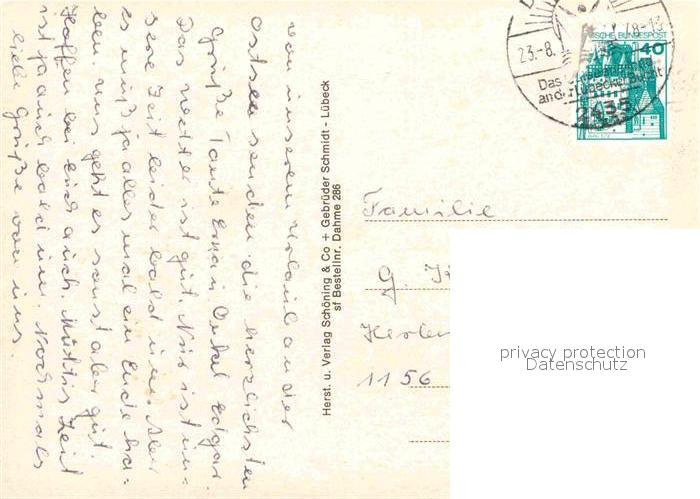 von unserem Urlaub an der
Ostsee senden die herzlichsten
Grüße Tante Onkel Edgar.
Das Wetter ist gut. Nur ist un-
sere Zeit leider bald um. Aber
es muß ja alles mal ein Ende ha-
ben. uns geht es sonst aber gut.
Hoffen bei Euch auch. Zeit
ist ja auch bald um. Nochmals
liebe Grüße von uns.
Herst. u. Verlag Schöning & Co + Gebrüder Schmidt - Lübeck
sf Bestellnr. Dahme 286
23.-8.
78-13
Das
an der Lübecker Bucht
2435
DEUTSCHE BUNDESPOST
40
Familie
G.
1156
privacy protection
Datenschutz